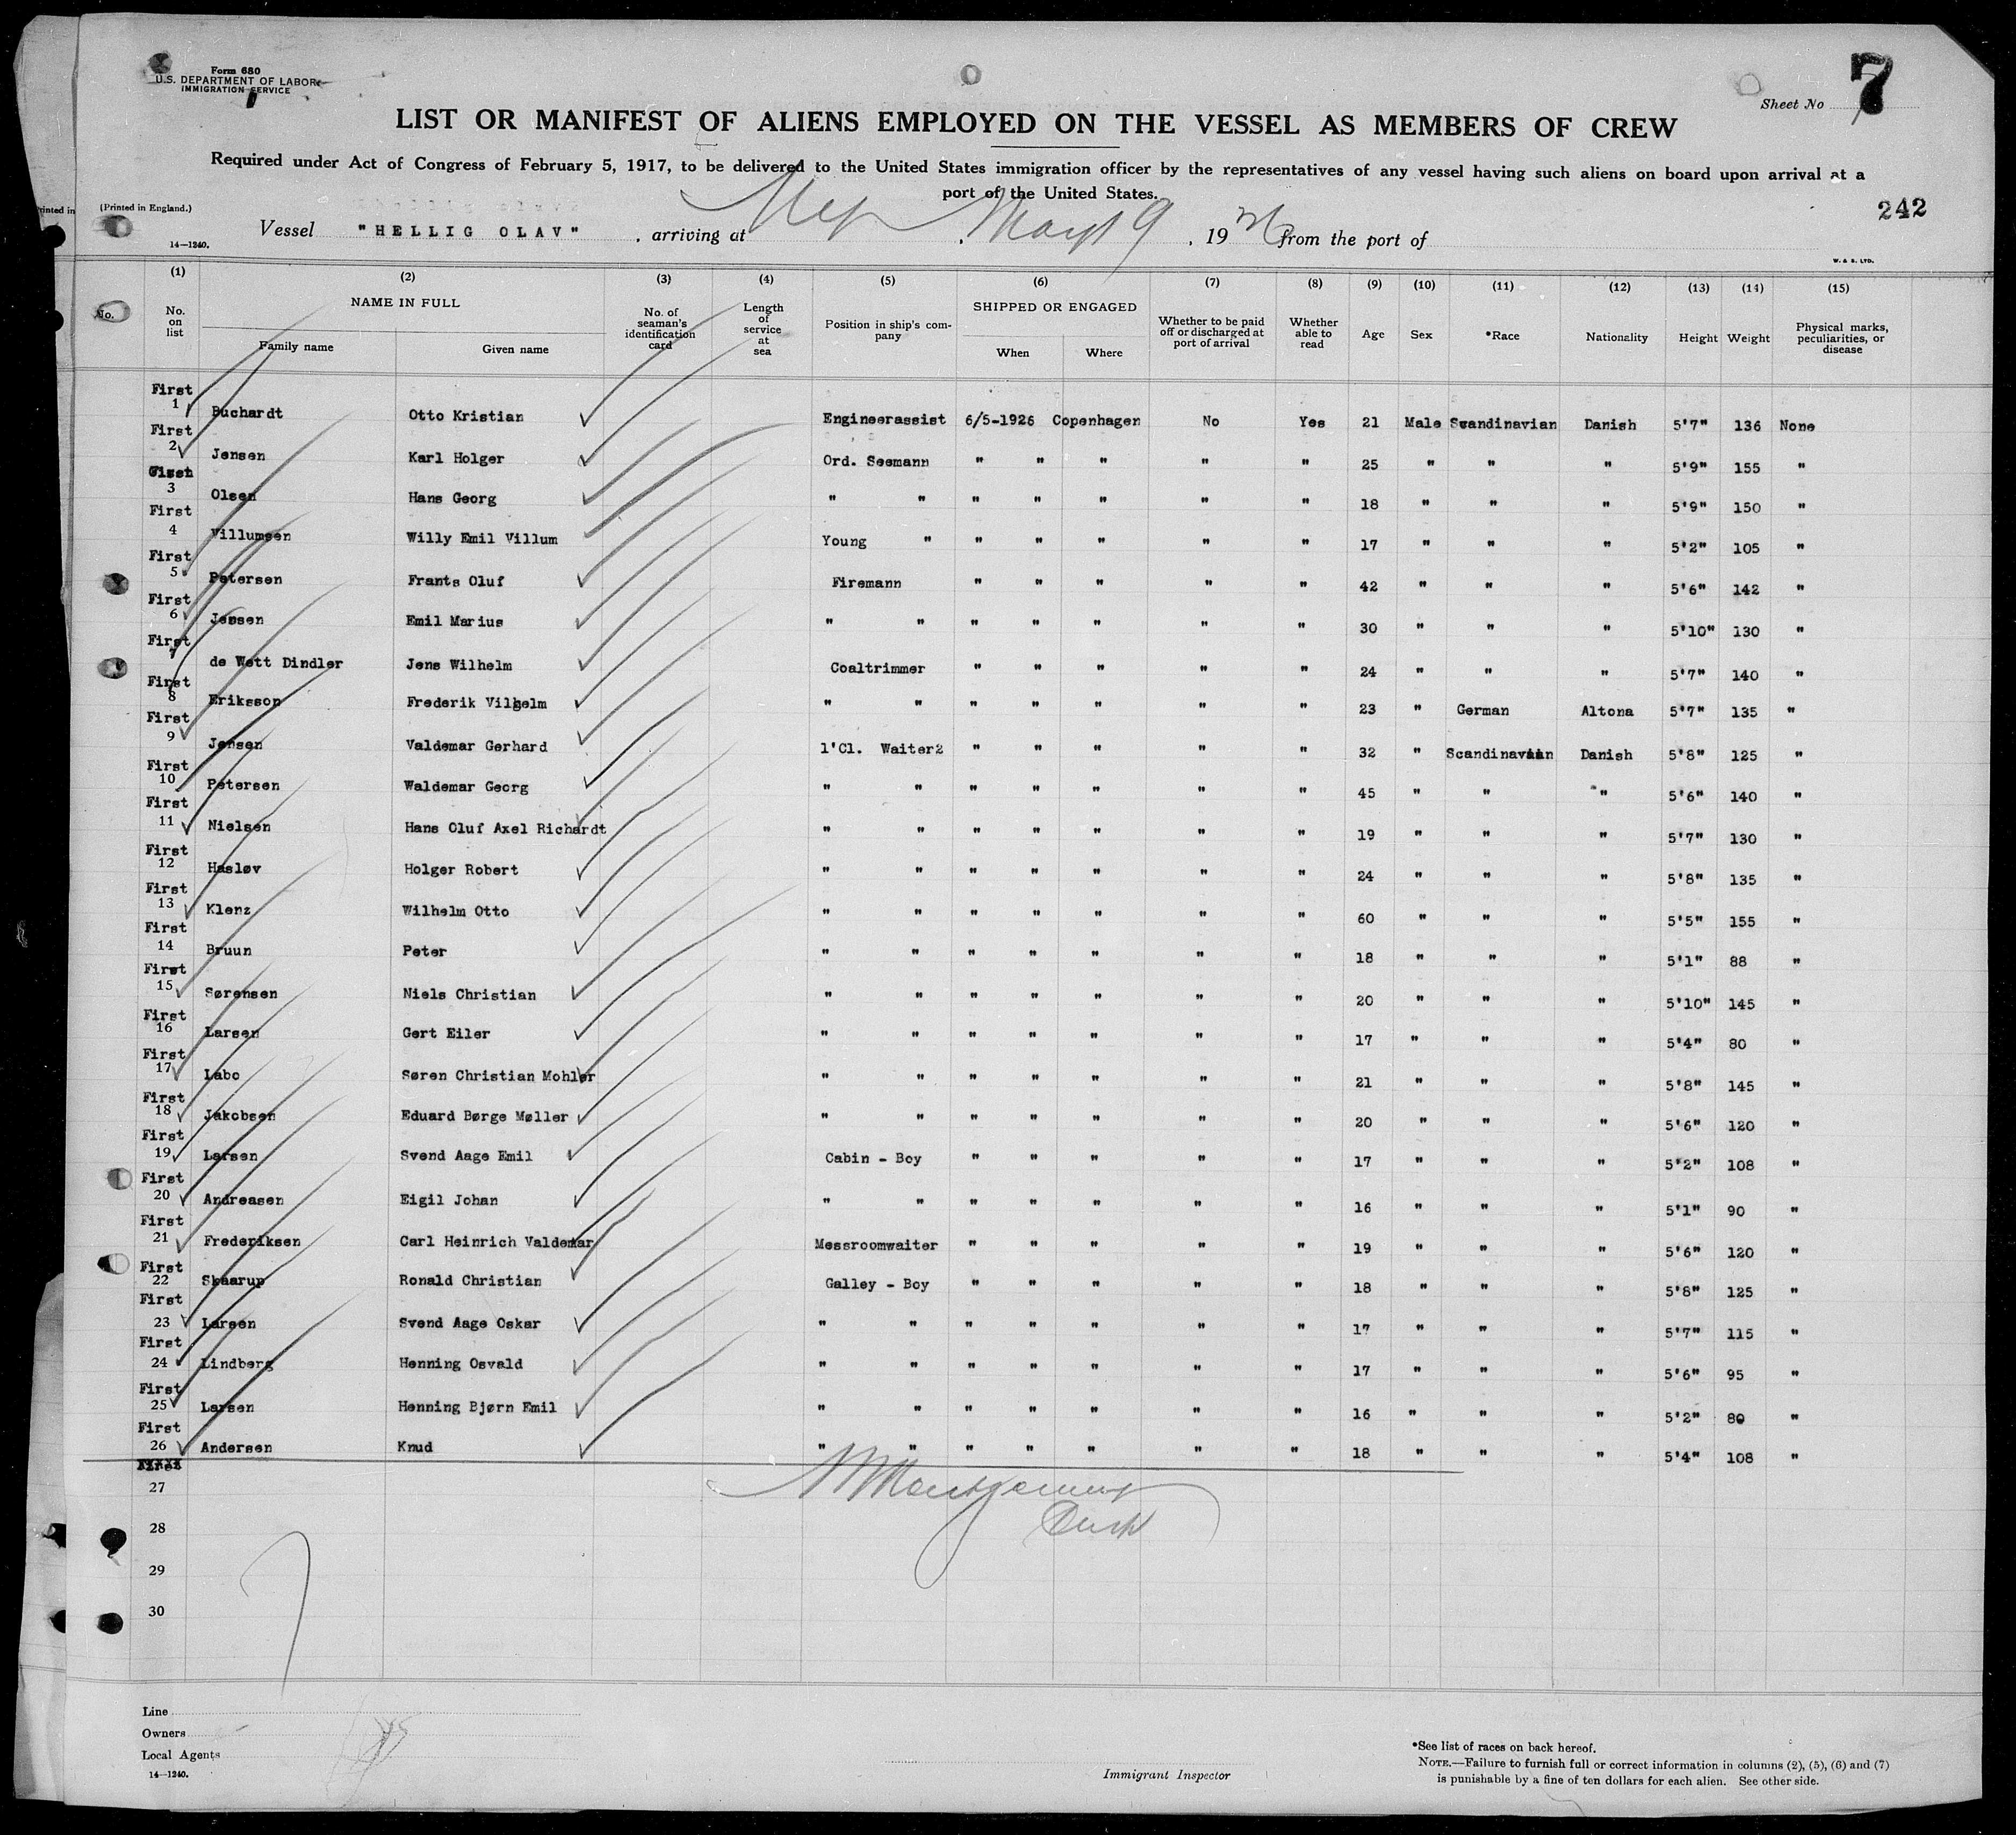 Form 680
U.S. DEPARTMENT OF LABOR
IMMIGRATION SERVICE
Sheet No 7
LIST OR MANIFEST OF ALIENS EMPLOYED ON THE VESSEL AS MEMBERS OF CREW
Required under Act of Congress of February 5, 1917, to be delivered to the United States immigration officer by the representatives of any vessel having such aliens on board upon arrival at a
port of the United States.
(Printed in England.)
242
14—1240.
Vessel "HELLIG OLAV" , arriving at , May 19 , 1926 from the port of
W. & S. LTD.
(1) (2) (3) (4) (5) (6) (7) (8) (9) (10) (11) (12) (13) (14) (15)
No. No. on list NAME IN FULL Family name Given name No. of seaman's identification card Length of service at sea Position in ship's company SHIPPED OR ENGAGED When Where Whether to be paid off or discharged at port of arrival Whether able to read Age Sex *Race Nationality Height Weight Physical marks, peculiarities, or disease
First 1 Buchardt Otto Kristian Engineerassist 6/5-1926 Copenhagen No Yes 21 Male Scandinavian Danish 5'7" 136 None
First 2 Jensen Karl Holger Ord. Seemann " " " " " 25 " " " 5'9" 155 "
3 Olsen Hans Georg " " " " " " " 18 " " " 5'9" 150 "
First 4 Villumsen Willy Emil Villum Young " " " " " " 17 " " " 5'2" 105 "
First 5 Petersen Frants Oluf Firemann " " " " " 42 " " " 5'6" 142 "
First 6 Jensen Emil Marius " " " " " " " 30 " " " 5'10" 130 "
First 7 de Wett Dindler Jens Wilhelm Coaltrimmer " " " " " 24 " " " 5'7" 140 "
First 8 Eriksson Frederik Vilhelm " " " " " " " 23 " German Altona 5'7" 135 "
First 9 Jensen Valdemar Gerhard 1'Cl. Waiter2 " " " " " 32 " Scandinavian Danish 5'8" 125 "
First 10 Petersen Waldemar Georg " " " " " " " 45 " " " 5'6" 140 "
First 11 Nielsen Hans Oluf Axel Richardt " " " " " " " 19 " " " 5'7" 130 "
First 12 Hasløv Holger Robert " " " " " " " 24 " " " 5'8" 135 "
First 13 Klenz Wilhelm Otto " " " " " " " 60 " " " 5'5" 155 "
First 14 Bruun Peter " " " " " " " 18 " " " 5'1" 88 "
First 15 Sørensen Niels Christian " " " " " " " 20 " " " 5'10" 145 "
First 16 Larsen Gert Eiler " " " " " " " 17 " " " 5'4" 80 "
First 17 Labo Søren Christian Mohler " " " " " " " 21 " " " 5'8" 145 "
First 18 Jakobsen Eduard Børge Møller " " " " " " " 20 " " " 5'6" 120 "
First 19 Larsen Svend Aage Emil Cabin - Boy " " " " " 17 " " " 5'2" 108 "
First 20 Andreasen Eigil Johan " " " " " " " 16 " " " 5'1" 90 "
First 21 Frederiksen Carl Heinrich Valdemar Messroomwaiter " " " " " 19 " " " 5'6" 120 "
First 22 Skaarup Ronald Christian Galley - Boy " " " " " 18 " " " 5'8" 125 "
First 23 Larsen Svend Aage Oskar " " " " " " " 17 " " " 5'7" 115 "
First 24 Lindberg Henning Osvald " " " " " " " 17 " " " 5'6" 95 "
First 25 Larsen Henning Bjørn Emil " " " " " " " 16 " " " 5'2" 80 "
First 26 Andersen Knud " " " " " " " 18 " " " 5'4" 108 "
27
Montgomery
28
29
30
Line
Owners
Local Agents
14—1240.
Immigrant Inspector
*See list of races on back hereof.
NOTE.—Failure to furnish full or correct information in columns (2), (5), (6) and (7)
is punishable by a fine of ten dollars for each alien. See other side.